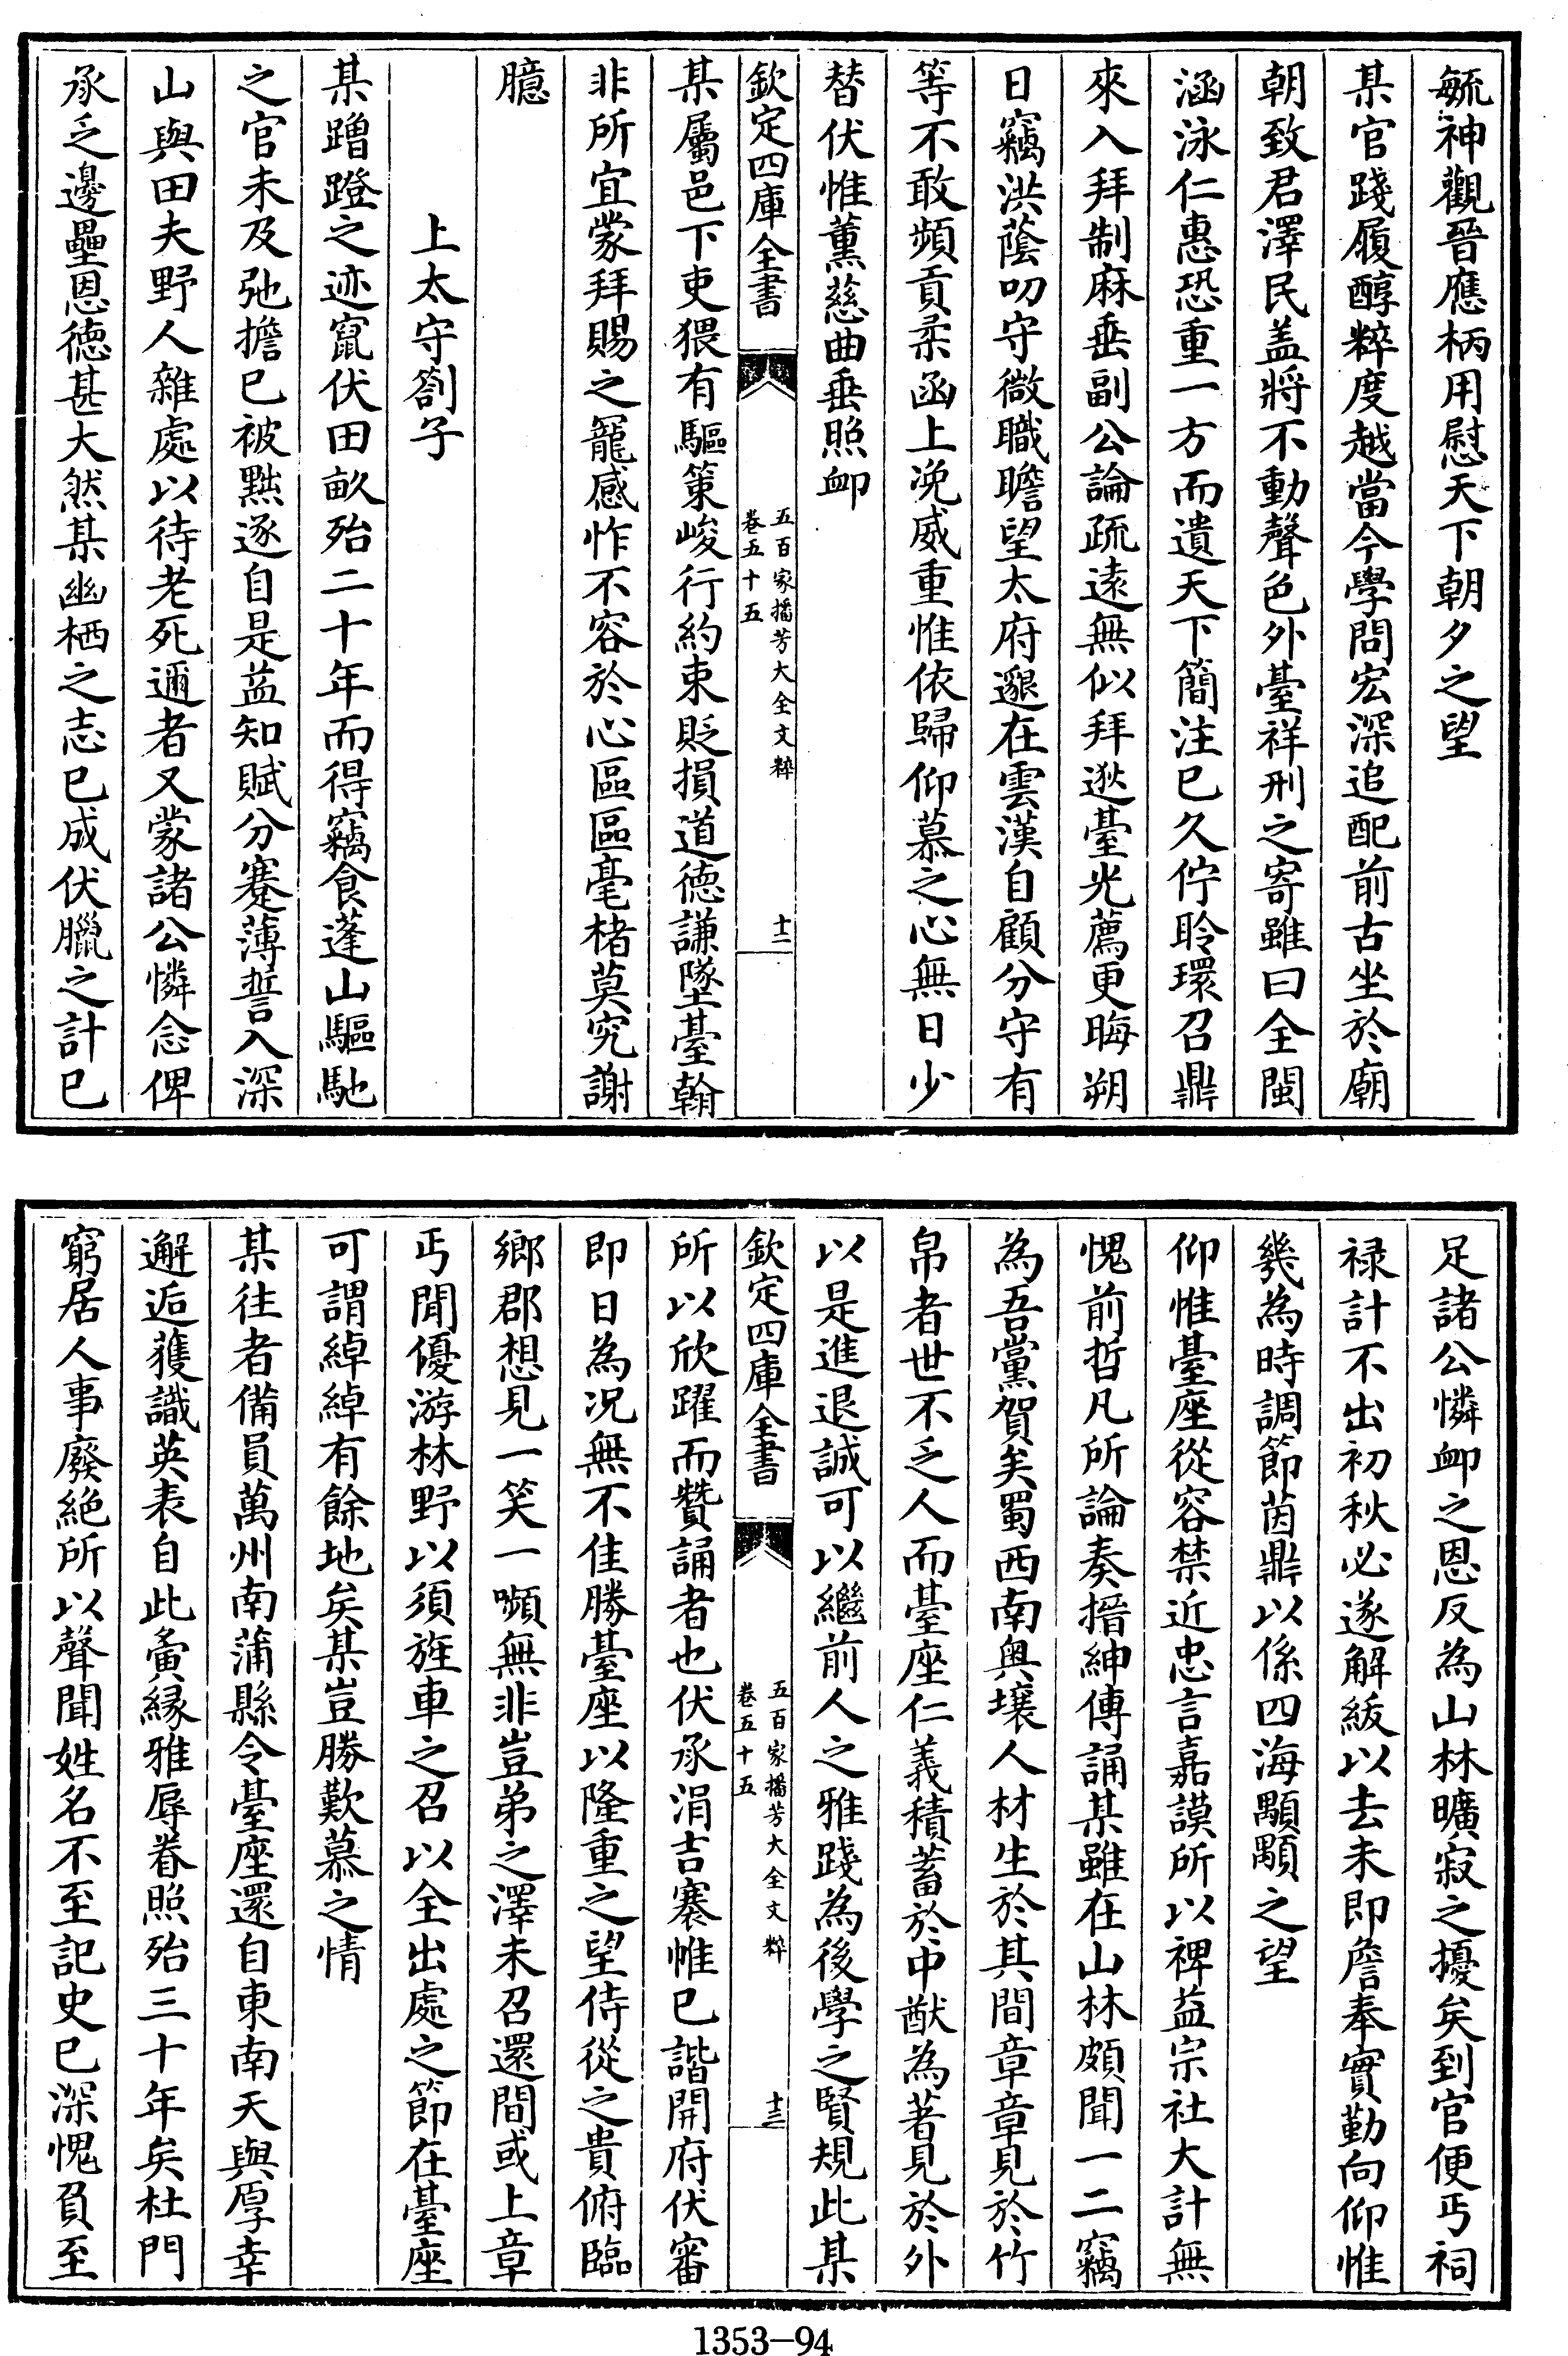 毓神觀晉應柄用慰天下朝夕之望
某官踐履醇粹度越當今學問宏深追配前古坐於廟
朝致君澤民盖將不動聲色外臺祥刑之寄雖曰全閩
涵泳仁惠恐重一方而遺天下簡注已久佇聆環召鼎
來入拜制麻垂副公論疏逺無似拜逖臺光薦更晦朔
日竊洪蔭叨守微職瞻望太府邈在雲漢自顧分守有
等不敢頻貢柔函上浼威重惟依歸仰慕之心無日少
替伏惟薰慈曲垂照卹
欽定四庫全書
五百家播芳大全文粹
卷五十五
十二
某屬邑下吏猥有驅策峻行約束貶損道德謙墜臺翰
非所宜蒙拜賜之寵感怍不容於心區區毫楮莫究謝
臆
上太守劄子
某蹭蹬之迹竄伏田畝殆二十年而得竊食蓬山驅馳
之官未及弛擔已被黜逐自是益知賦分蹇薄誓入深
山與田夫野人雜處以待老死邇者又蒙諸公憐念俾
承乏邊壘恩德甚大然某幽栖之志已成伏臘之計已
足諸公憐卹之恩反為山林曠寂之擾矣到官便丐祠
禄計不出初秋必遂解紱以去未即詹奉實勤向仰惟
幾為時調節茵鼎以係四海顒顒之望
仰惟臺座從容禁近忠言嘉謨所以裨益宗社大計無
愧前哲凡所論奏搢紳傳誦某雖在山林頗聞一二竊
為吾黨賀矣蜀西南奥壤人材生於其間章章見於竹
帛者世不乏人而臺座仁義積蓄於中猷為著見於外
以是進退誠可以繼前人之雅踐為後學之賢規此某
欽定四庫全書
五百家播芳大全文粹
卷五十五
十三
所以欣躍而贊誦者也伏承涓吉褰帷已諧開府伏審
即日為况無不佳勝臺座以隆重之望侍從之貴俯臨
鄉郡想見一笑一嚬無非豈弟之澤未召還間或上章
丐閒優游林野以須旌車之召以全出處之節在臺座
可謂綽綽有餘地矣某豈勝歎慕之情
某往者備員萬州南蒲縣令臺座還自東南天與厚幸
邂逅獲識英表自此夤縁雅辱眷照殆三十年矣杜門
窮居人事廢絶所以聲聞姓名不至記史已深愧負至
1353-94